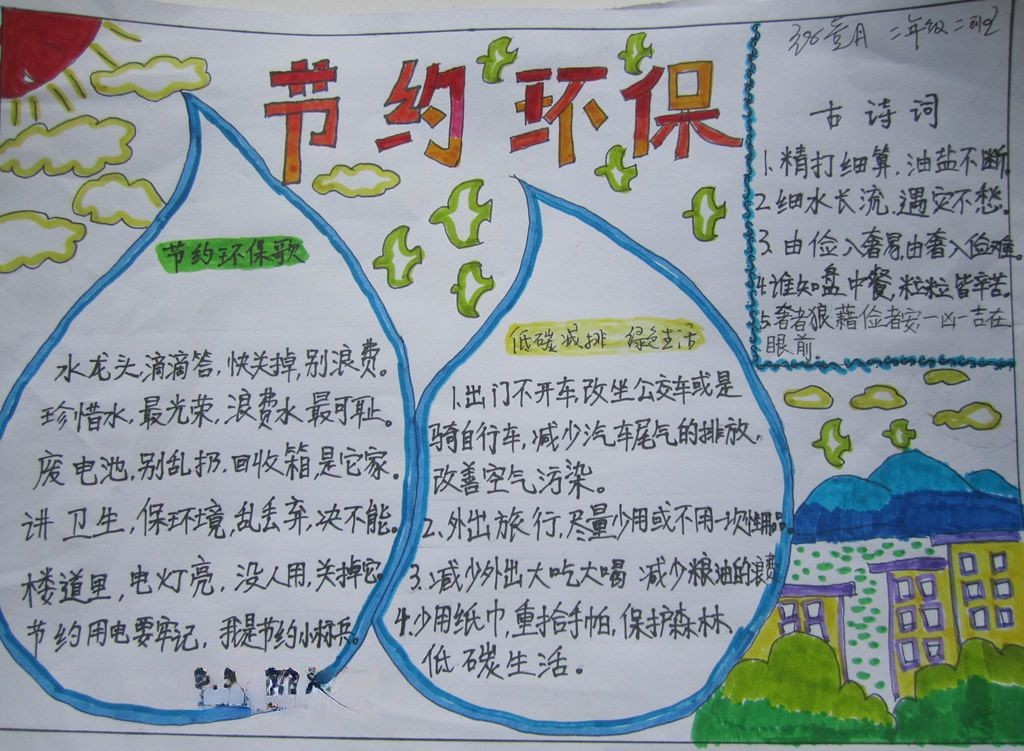 节约环保
二年级二班
节约环保歌
水龙头,滴滴答,快关掉,别浪费。
珍惜水,最光荣,浪费水,最可耻。
废电池,别乱扔,回收箱是它家。
讲卫生,保环境,乱丢弃,决不能。
楼道里,电灯亮,没人用,关掉它。
节约用电要牢记,我是节约小标兵。
低碳减排 绿色生活
1.出门不开车,改坐公交车或是
骑自行车,减少汽车尾气的排放,
改善空气污染。
2.外出旅行,尽量少用或不用一次性用品。
3.减少外出大吃大喝 减少粮油的浪费
4.少用纸巾,重拾手帕,保护森林,
低碳生活。
古诗词
1.精打细算,油盐不断。
2.细水长流,遇灾不愁。
3.由俭入奢易,由奢入俭难。
4.谁知盘中餐,粒粒皆辛苦。
5.奢者狼藉俭者安,一凶一吉在
眼前.